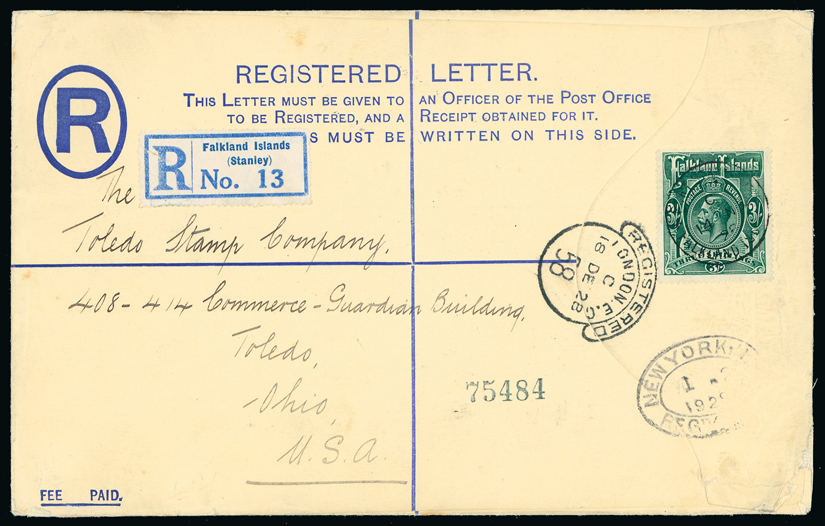 REGISTERED LETTER.
THIS LETTER MUST BE GIVEN TO AN OFFICER OF THE POST OFFICE
TO BE REGISTERED, AND A RECEIPT OBTAINED FOR IT.
S MUST BE WRITTEN ON THIS SIDE.
R
R
Falkland Islands
(Stanley)
No. 13
The
Toledo Stamp Company,
408-414 Commerce-Guardian Building,
Toledo,
Ohio,
U.S.A.
Falkland Islands
POSTAGE REVENUE
3/-
3/-
REGISTERED
LONDON.E.C.
C
18 DE 28
58
75484
NEW YORK
192
FEE PAID.